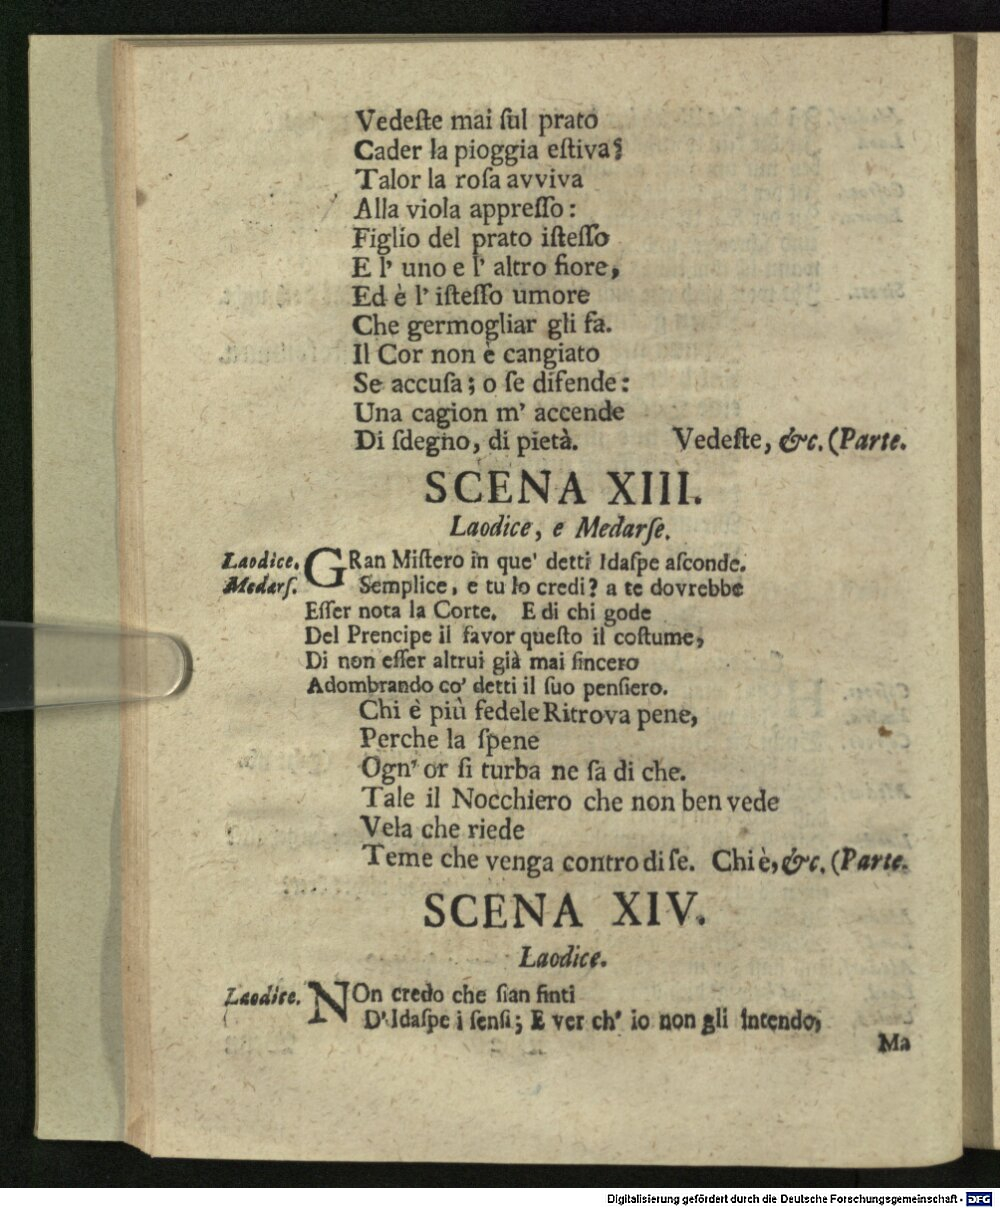 Vedeſte mai ſul prato
Cader la pioggia eſtiva?
Talor la roſa avviva
Alla viola appreſſo:
Figlio del prato iſteſſo
E l' uno e l' altro fiore,
Ed è l' iſteſſo umore
Che germogliar gli fa.
Il Cor non è cangiato
Se accuſa; o ſe difende:
Una cagion m' accende
Di ſdegno, di pietà. Vedeſte, &c. (Parte.
SCENA XIII.
Laodice, e Medarſe.
Laodice. GRan Miſtero in que' detti Idaſpe aſconde.
Medarſ. Semplice, e tu lo credi? a te dovrebbe
Eſſer nota la Corte. E di chi gode
Del Prencipe il favor queſto il coſtume,
Di non eſſer altrui già mai ſincero
Adombrando co' detti il ſuo penſiero.
Chi è più fedele Ritrova pene,
Perche la ſpene
Ogn' or ſi turba ne ſa di che.
Tale il Nocchiero che non ben vede
Vela che riede
Teme che venga contro di ſe. Chi è, &c. (Parte.
SCENA XIV.
Laodice.
Laodice. NOn credo che ſian finti
D' Idaſpe i ſenſi; E ver ch' io non gli intendo,
Ma
Digitalisierung gefördert durch die Deutsche Forschungsgemeinschaft - DFG